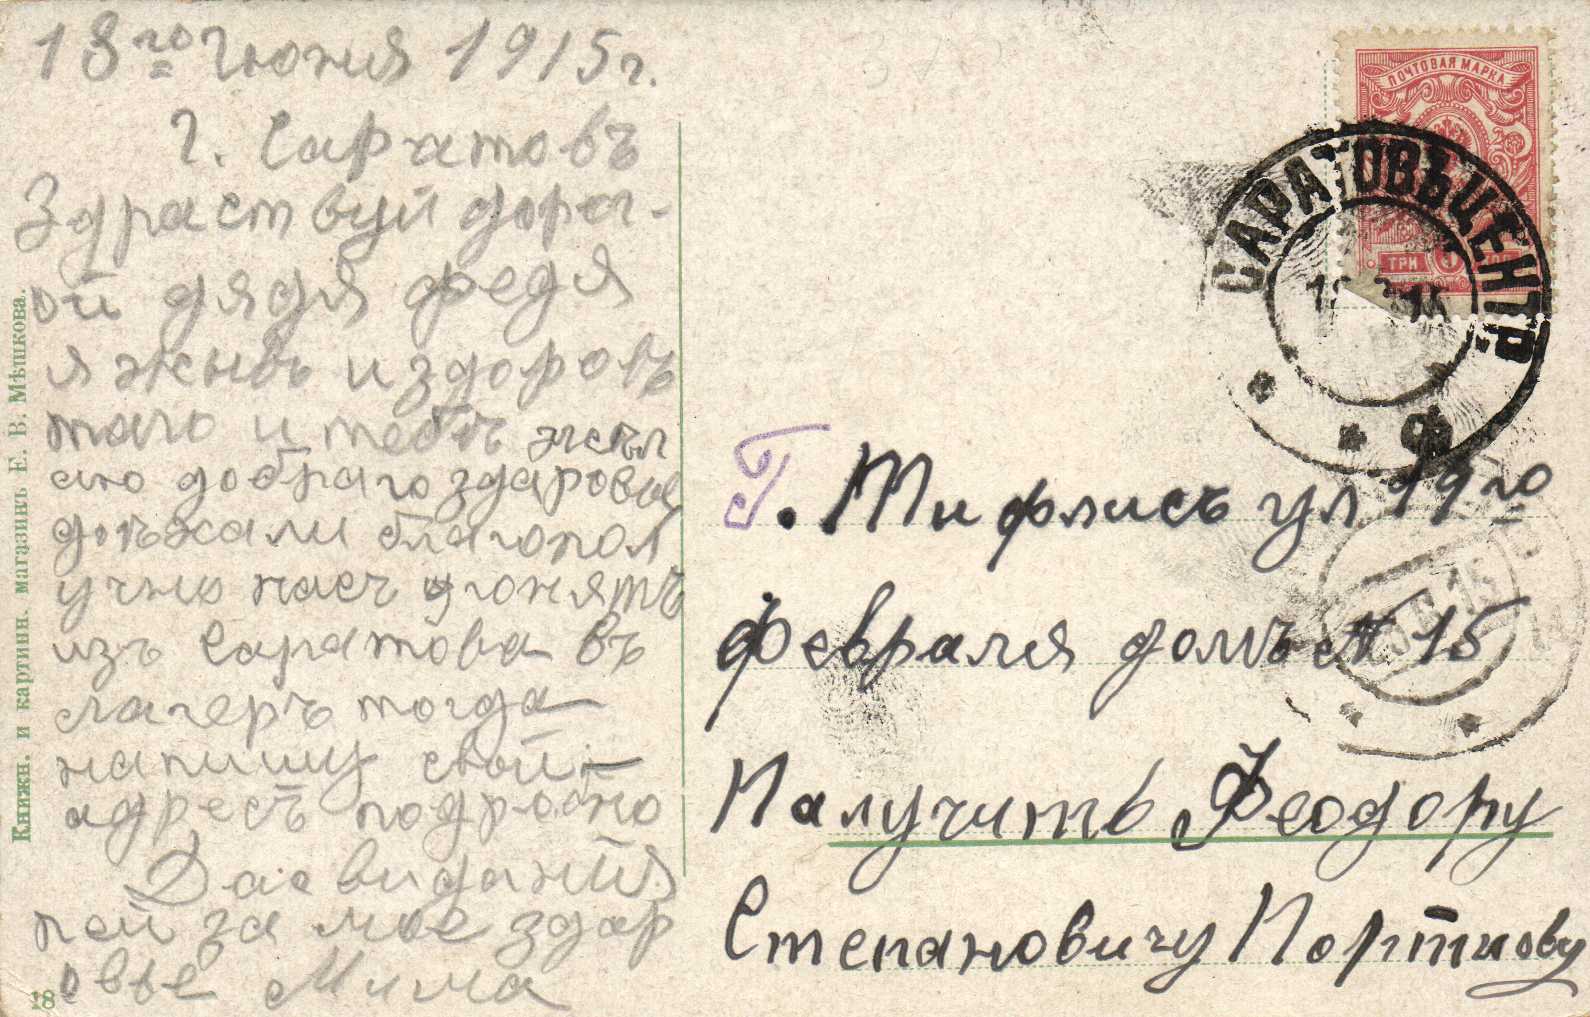 13го Июня 1915 г.
г. Саратовъ
Здраствуй дорог-
ой дядя Федя
я живъ и здоровъ
таго и тебѣ жела
аю добраго здаровье
доѣхали благопол
учно насъ угонятъ
изъ Саратова въ
лагеръ тогда
напишу свой
адресъ подробно
Дасвиданія
пей за мое здар
овье Мима
18
Книжн. и картинн. магазинъ Е. В. Мѣшкова.
ПОЧТОВАЯ МАРКА
ТРИ КОП
САРАТОВЪ ЦЕНТР.
15
Ф
Г. Тифлисъ ул 19го
февраля домъ № 15
Палучить Феодору
Степановичу Портнову